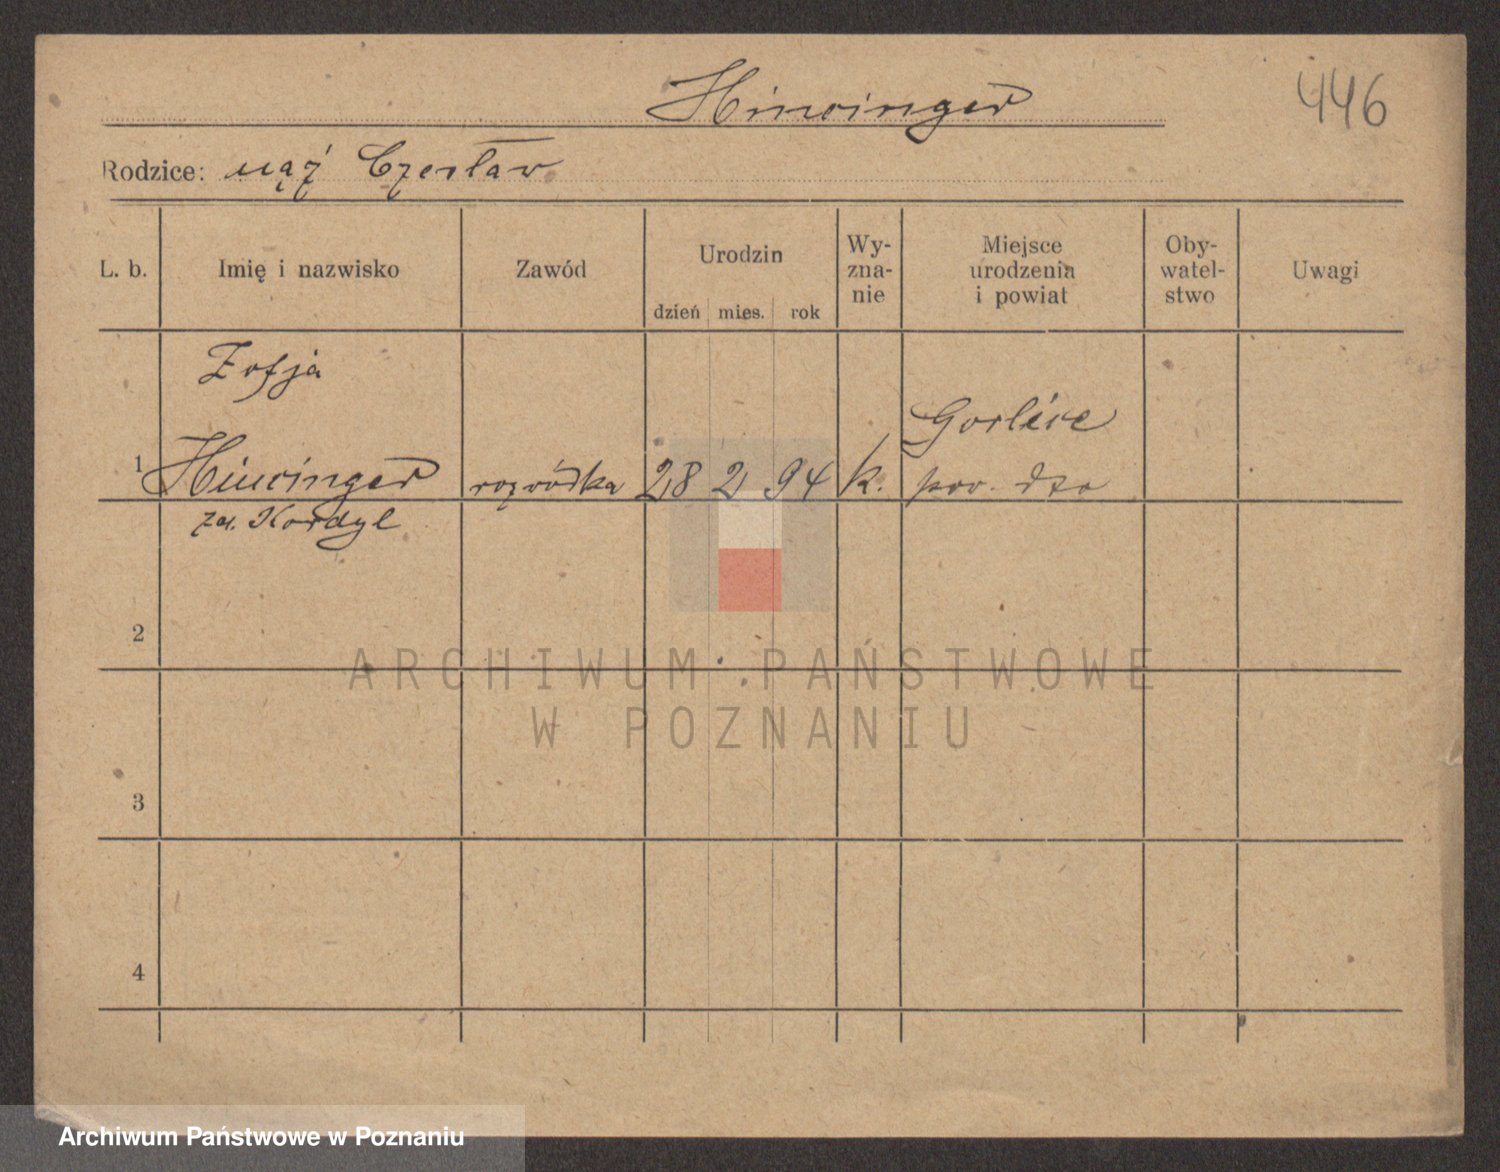 Hincinger
446
Rodzice: mąż Czesław
L. b.
Imię i nazwisko
Zawód
Urodzin
dzień mies. rok
Wy-
zna-
nie
Miejsce
urodzenia
i powiat
Oby-
watel-
stwo
Uwagi
Zofja
1 Hincinger rozwódka 28 2 94 k. Gorlice
pow. dto
za. Kordyl
2
ARCHIWUM PAŃSTWOWE
W POZNANIU
3
4
Archiwum Państwowe w Poznaniu